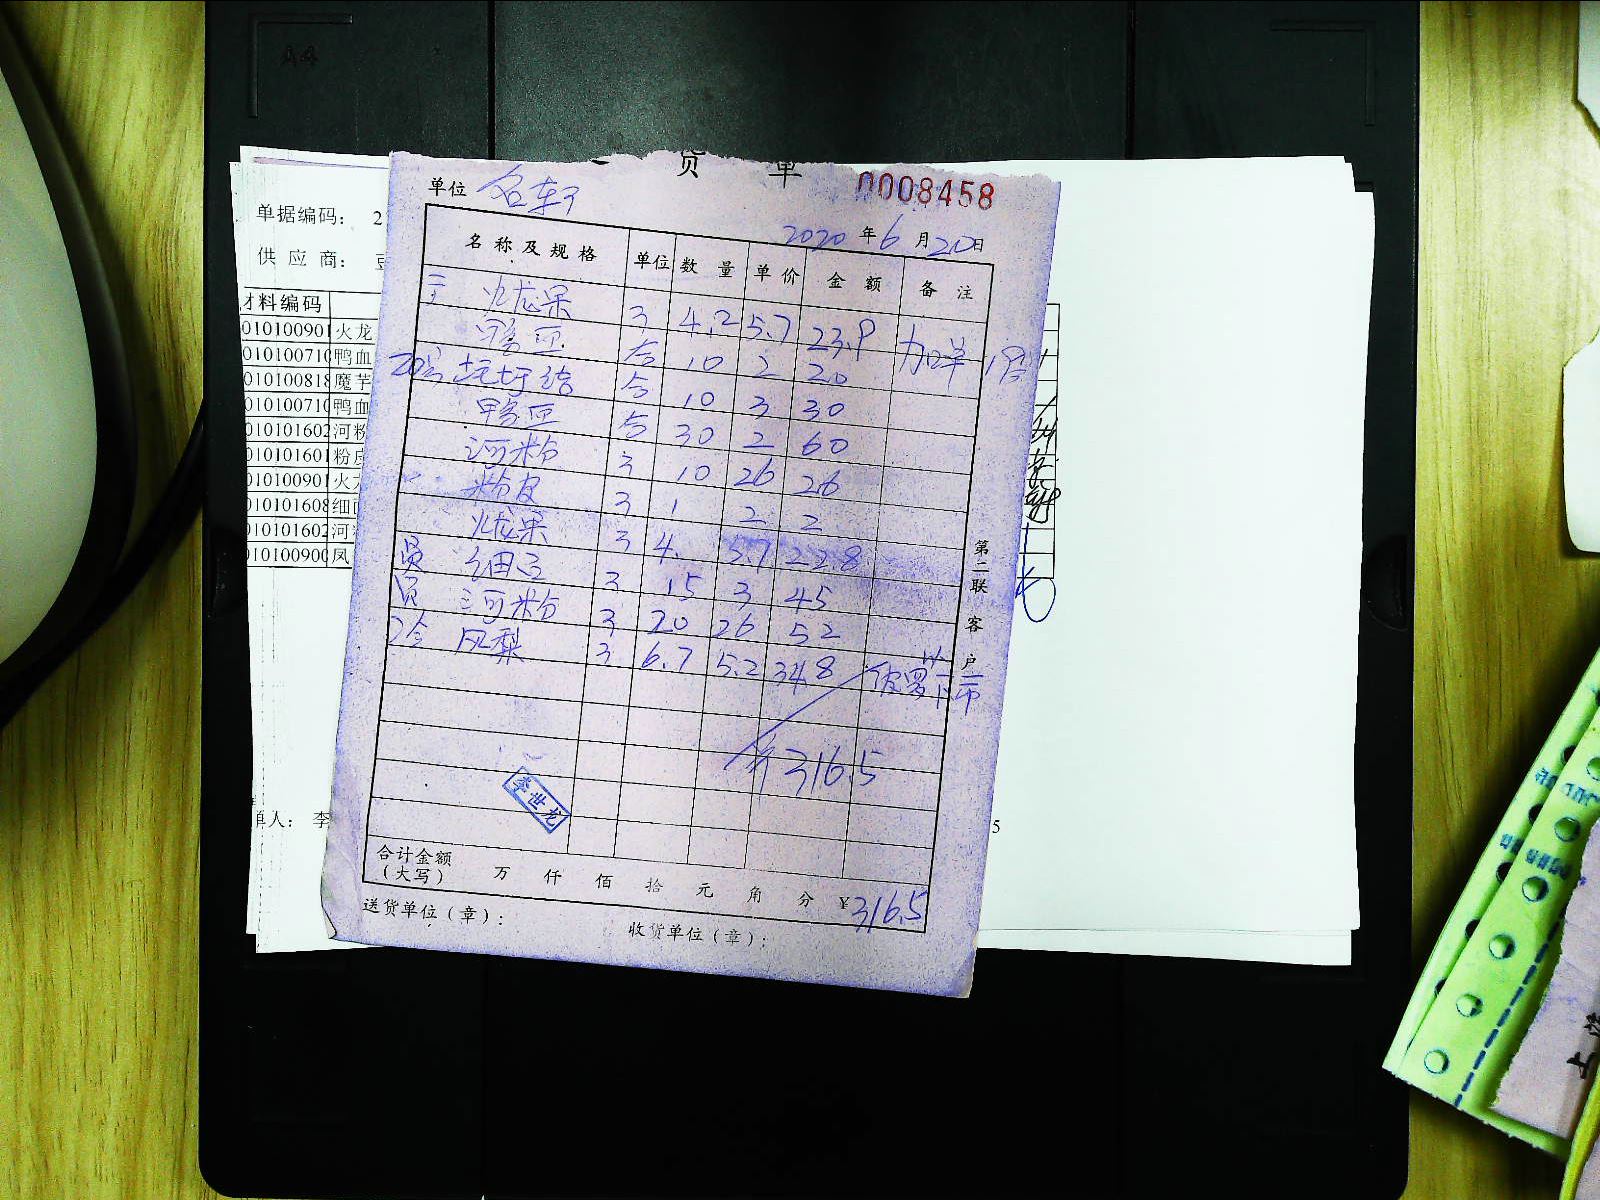 A4
货 单
0008458
单位 名轩
2020 年 6 月 20 日
名称及规格 单位 数量 单价 金额 备注
火龙果 3 4.2 5.7 23.9 加单
鸭血 合 10 2 20
合 10 3 30
鸭血 合 30 2 60
河粉 3 10 26 26
粉皮 3 1 2 2
火龙果 3 4. 5.7 22.8
员 细面 3 15 3 45
员 河粉 3 20 26 52
冷 凤梨 3 6.7 5.2 34.8
316.5
李世龙
合计金额
(大写) 万 仟 佰 拾 元 角 分 ¥316.5
送货单位(章): 收货单位(章):
第二联 客户
单据编码: 2
供应商: 豆
材料编码
010100901 火龙
010100710 鸭血
010100818 魔芋
010100710 鸭血
010101602 河粉
010101601 粉皮
010100901 火龙
010101608 细面
010101602 河粉
010100900 凤
单人: 李
5